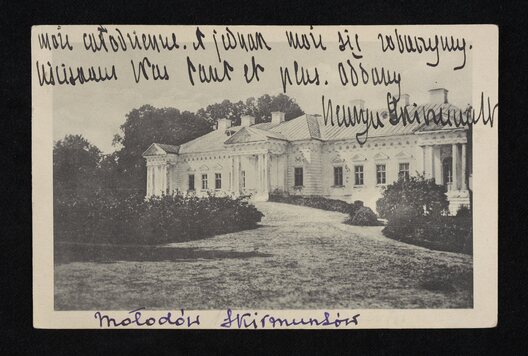 mori całodzienne. A jednak mori się zobaczymy.
Uściskam Was tant et plus. Oddany
Henryk Skirmuntt
Mołodów Skirmuntów